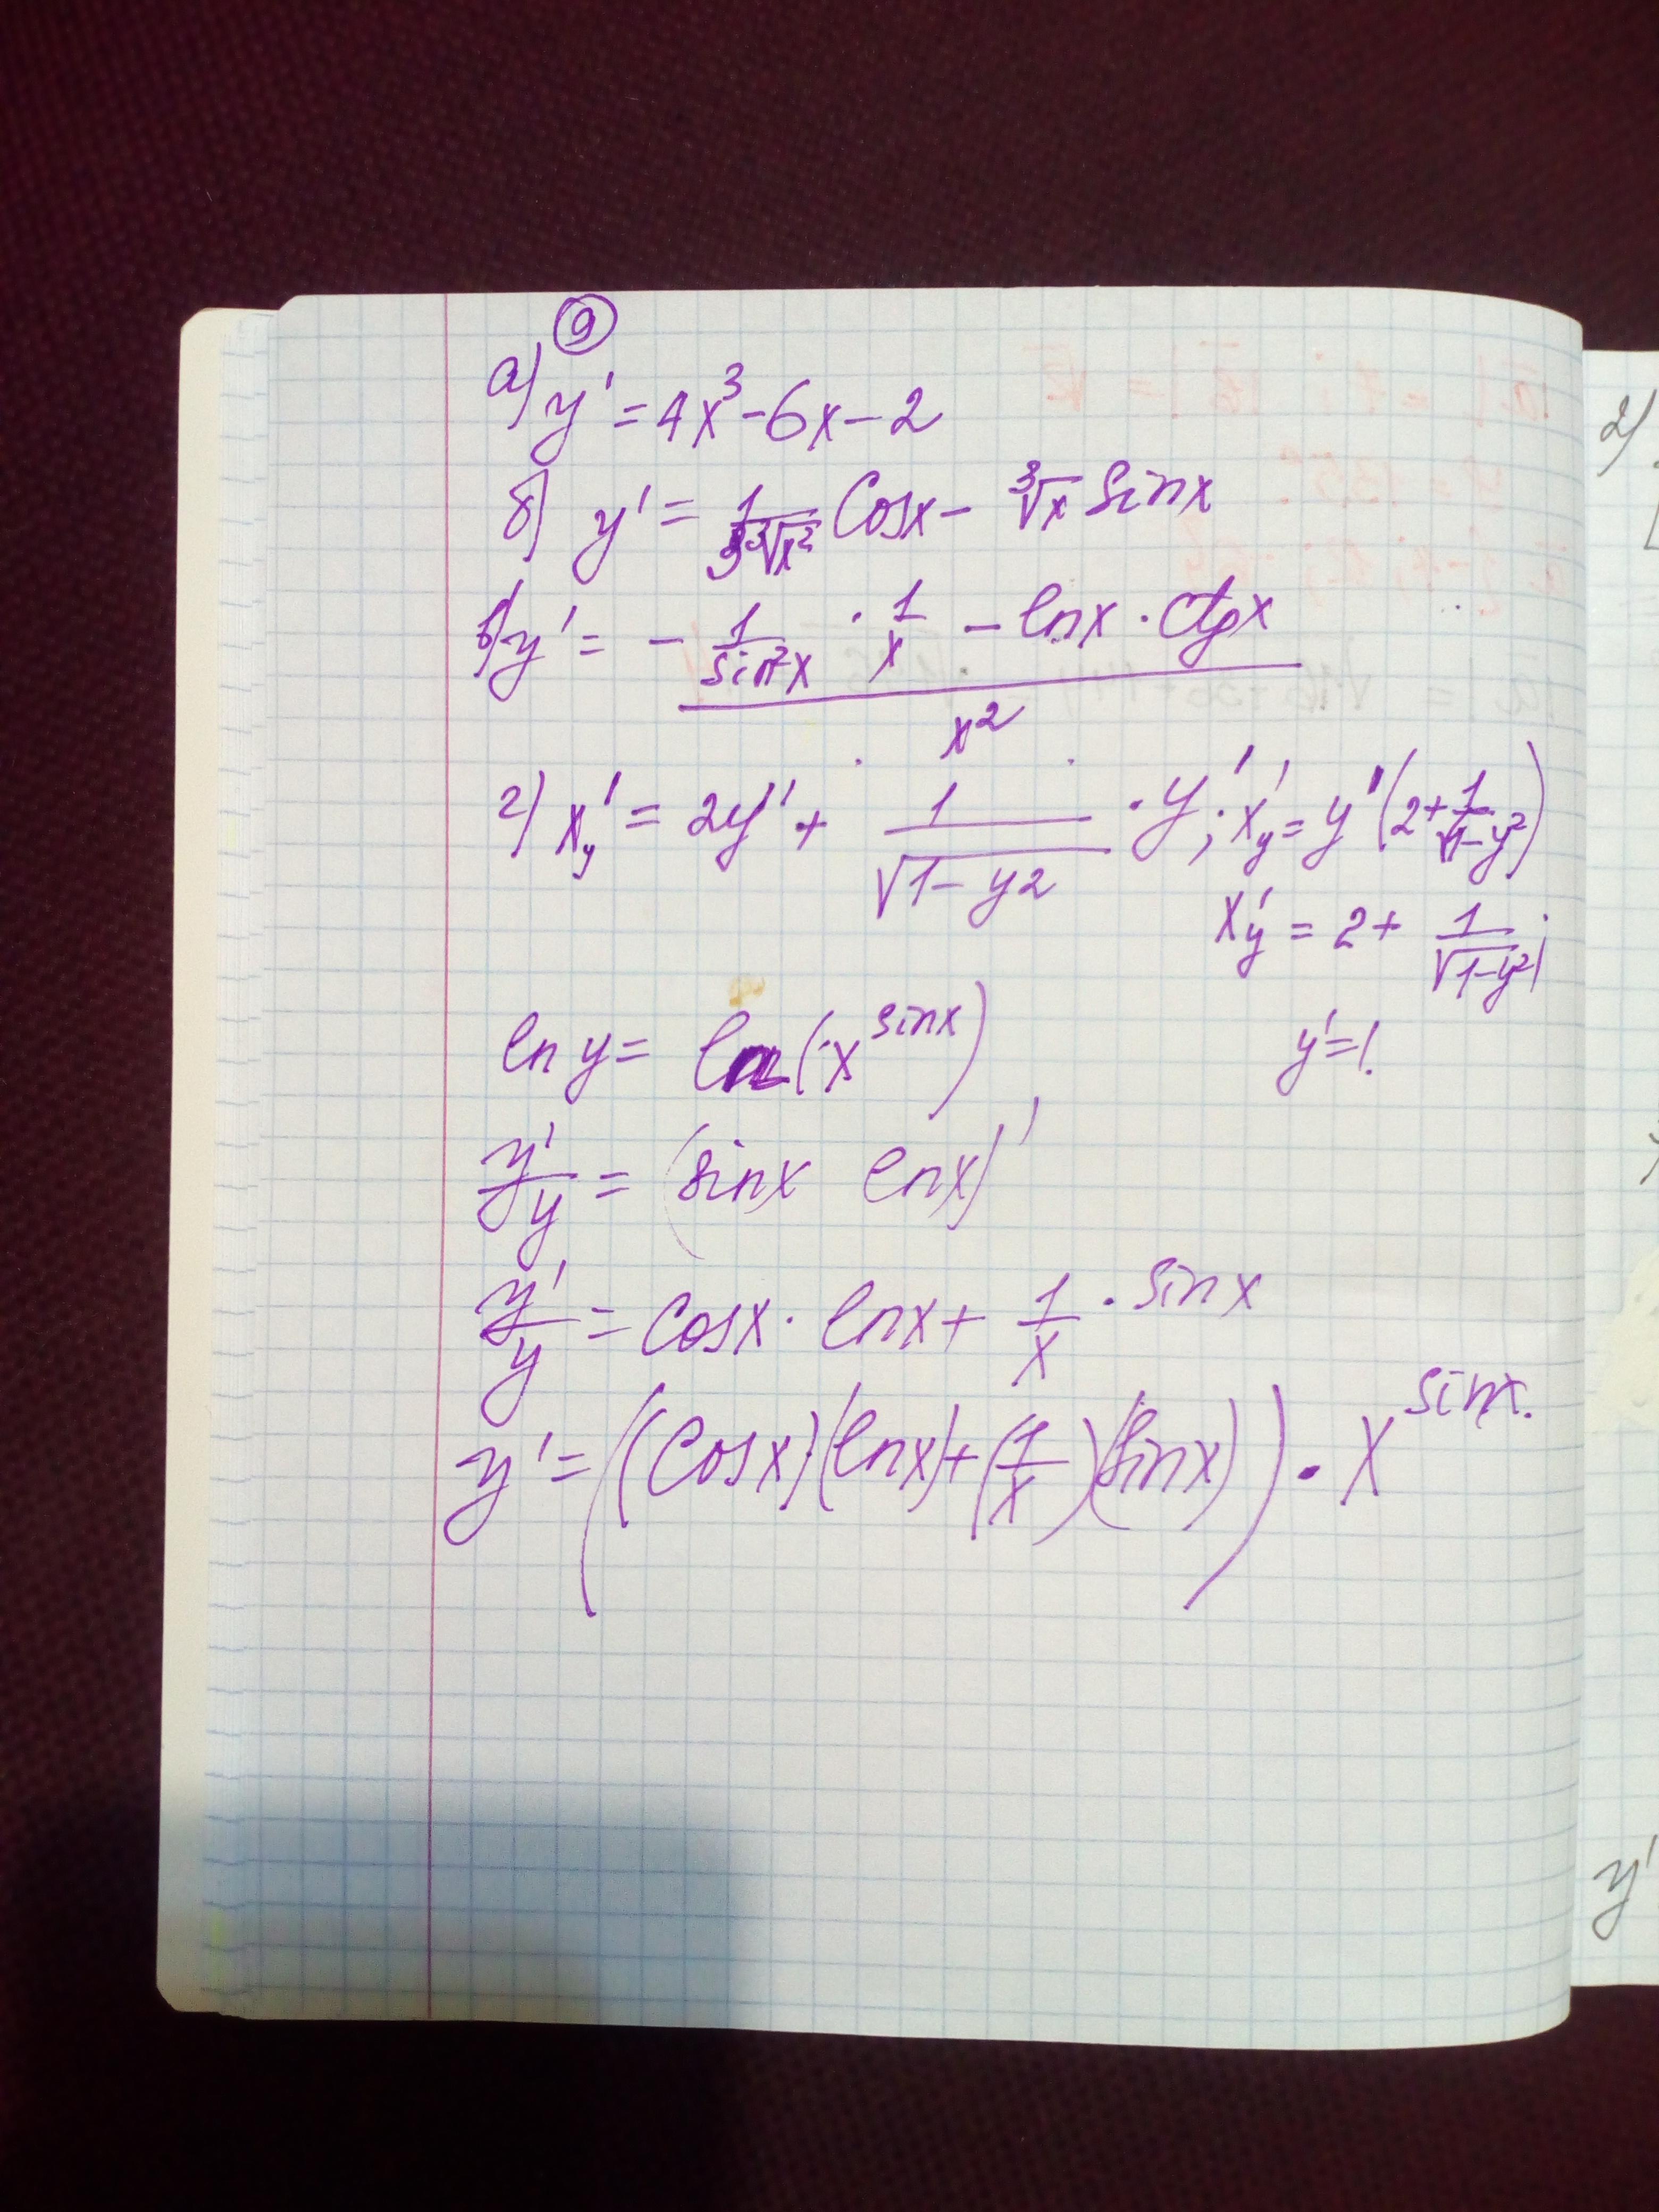 9
а) y' = 4x³ - 6x - 2
б) y' = 1/(3∛x²) cosx - ∛x sinx
в) y' = (- 1/sin²x · 1/x - lnx · ctgx)/x²
г) x'y = 2y' + 1/√(1-y2) · y'; x'y = y'(2 + 1/√(1-y²))
x'y = 2 + 1/√(1-y²);
ln y = ln(x^sinx)
y' = 1.
y'/y = (sinx lnx)'
y'/y = cosx · lnx + 1/x · sinx
y' = ((cosx)·(lnx) + (1/x)(sinx)) · x^sinx.
2)
y'